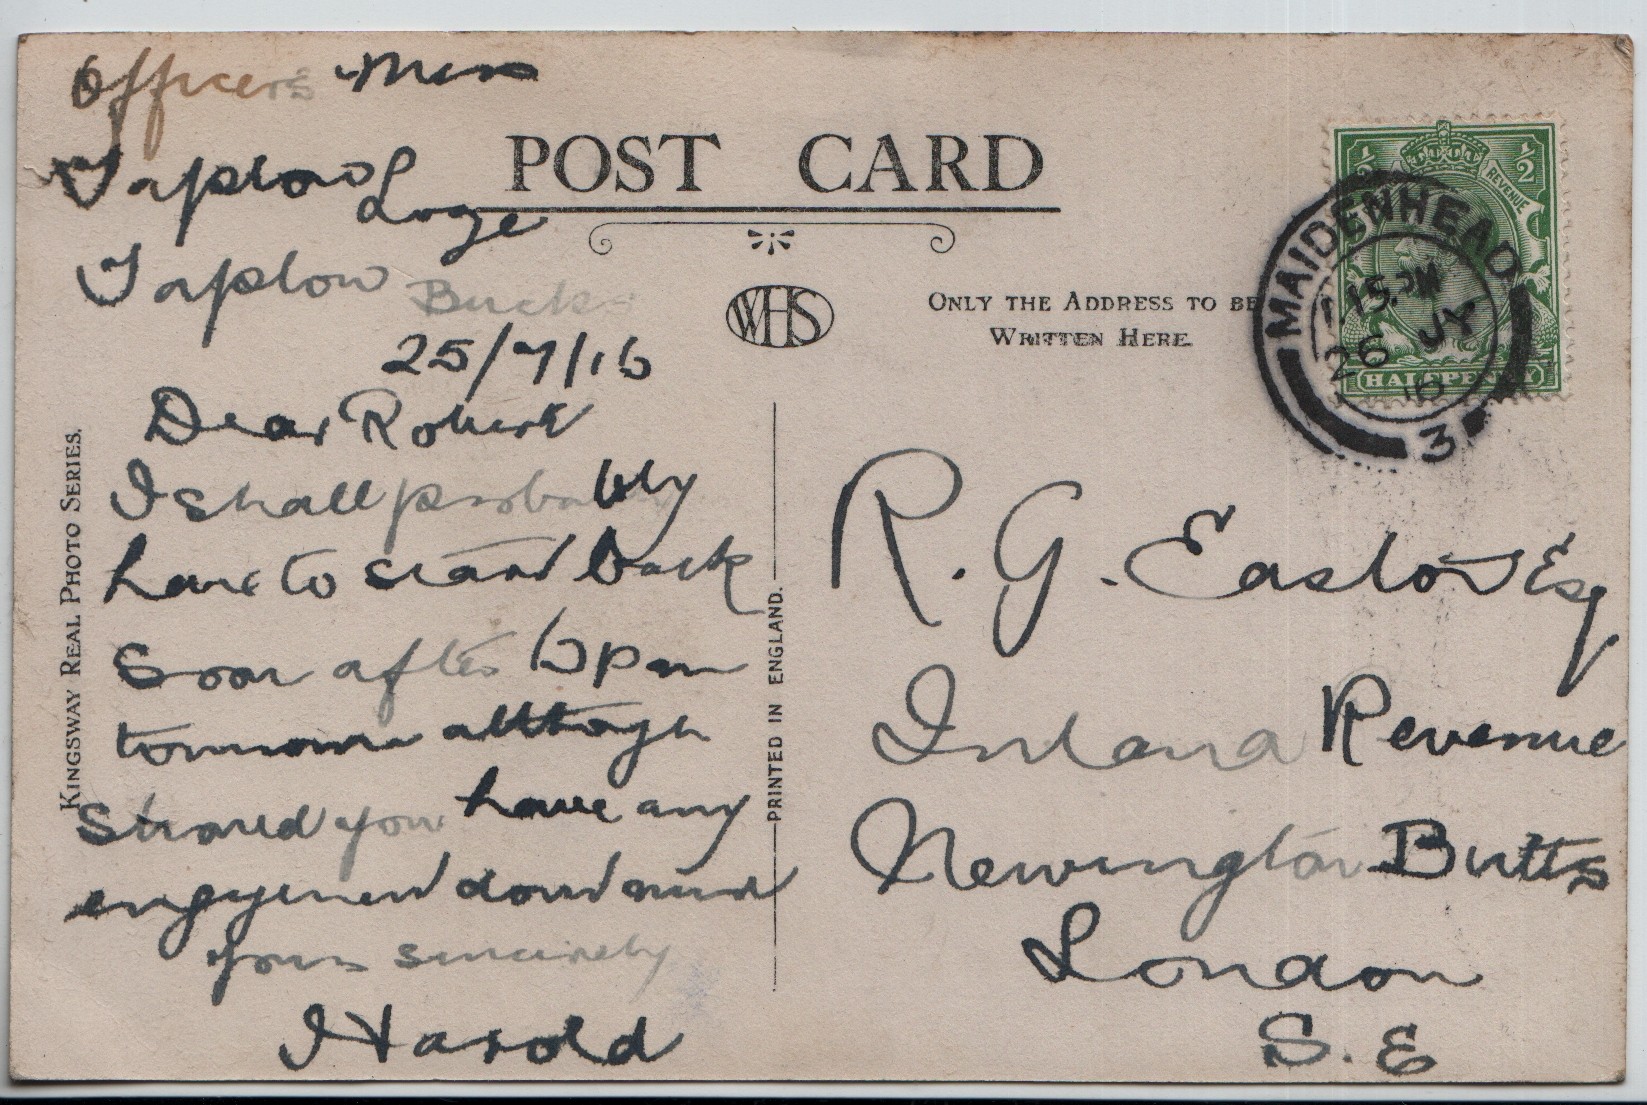 Officers Mess
Taplow Loge
Taplow Bucks
25/7/16
Dear Robert
I shall probably
have to start back
soon after 6 pm
tomorrow although
should you have any
engagement dont mind
yours sincerely
Harold
KINGSWAY REAL PHOTO SERIES.
POST CARD
WHS
PRINTED IN ENGLAND.
ONLY THE ADDRESS TO BE
WRITTEN HERE.
½ REVENUE ½
HALFPENNY
MAIDENHEAD
1 15.PM
26 JY
16
3
R. G. Easton Esq
Inland Revenue
Newington Butts
London
S. E